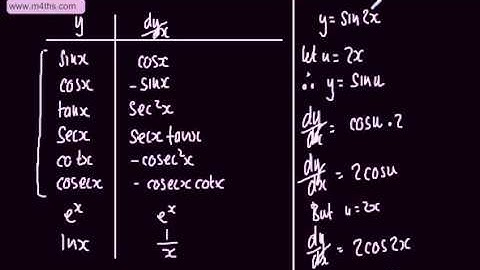 www.m4ths.com
y dy/dx
sinx cosx
cosx -sinx
tanx sec²x
secx secxtanx
cotx -cosec²x
cosecx -cosecxcotx
eˣ eˣ
lnx 1/x
y=sin2x
let u=2x
∴ y=sinu
dy/dx = cosu·2
dy/dx = 2cosu
But u=2x
dy/dx = 2cos2x